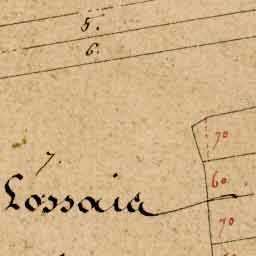 5.
6.
70
7.
60
Lossaia
70